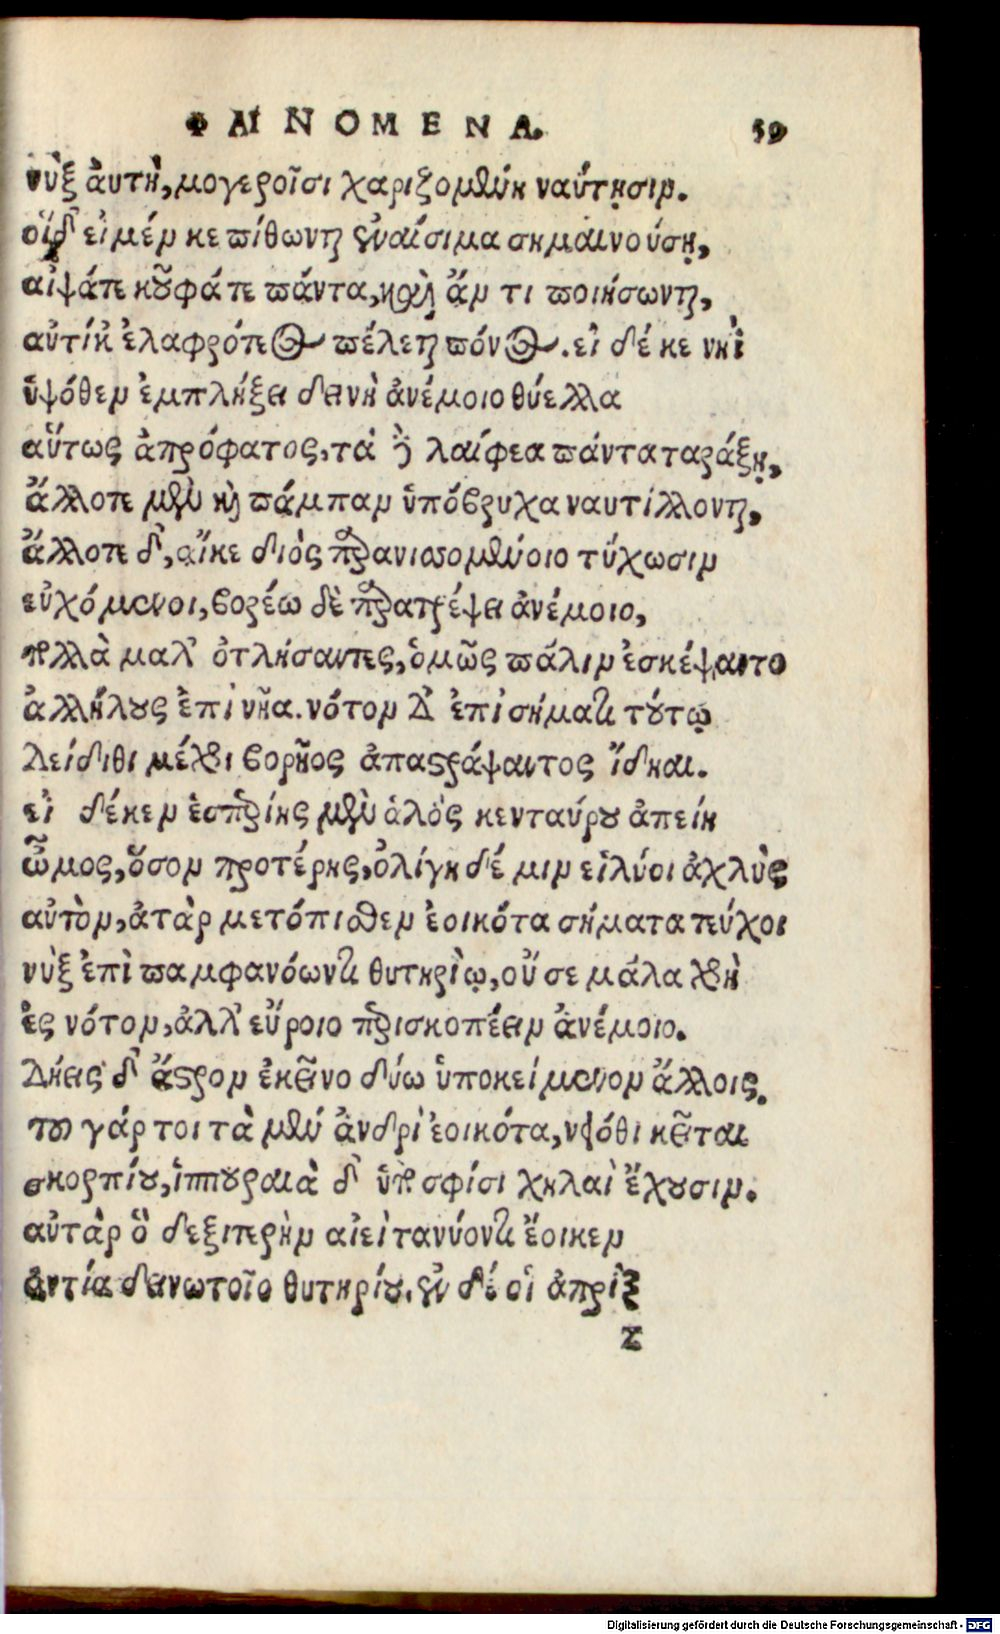 ΦΑΙΝΟΜΕΝΑ. 59
νὺξ ἀυτὴ, μογεροῖσι χαριζομένη ναύτῃσιν.
οἵδ' εἰ μέν κε πίθωνται ἐναίσιμα σημαινούσῃ,
αἶψά τε κοῦφά τε πάντα, καὶ ἄν τι ποιήσωνται,
αὐτίκ' ἐλαφρότερος πέλεται πόνος. εἰ δέ κε νηῒ
ὑψόθεν ἐμπλήξει δεινὴ ἀνέμοιο θύελλα
αὕτως ἀπρόφατος, τὰ δὲ λαίφεα πάντα ταράξῃ,
ἄλλοτε μὲν καὶ πάμπαν ὑπόβρυχα ναυτίλλονται,
ἄλλοτε δ', αἴκε διὸς παρανισσομένοιο τύχωσιν
εὐχόμενοι, βορέω δὲ παρατρέψει ἀνέμοιο,
πολλὰ μαλ' ὀτλήσαντες, ὁμῶς πάλιν ἐσκέψαντο
ἀλλήλους ἐπὶ νῆα. νότον δ' ἐπὶ σήματι τούτῳ
δείδιθι μέχρι βορῆος ἀπαστράψαντος ἴδηαι.
εἰ δέ κεν ἑσπερίης μὲν ἁλὸς κενταύρου ἀπείη
ὦμος, ὅσον προτέρης, ὀλίγη δέ μιν εἰλύοι ἀχλὺς
αὐτὸν, ἀτὰρ μετόπισθεν ἐοικότα σήματα τεύχοι
νὺξ ἐπὶ παμφανόωντι θυτηρίῳ, οὔ σε μάλα χρὴ
ἐς νότον, ἀλλ' εὔροιο περισκοπέειν ἀνέμοιο.
Δήεις δ' ἄστρον ἐκεῖνο δύω ὑποκείμενον ἄλλοις.
του γάρ τοι τὰ μὲν ἀνδρὶ ἐοικότα, νειόθι κεῖται
σκορπίου, ἱππουραιὰ δ' ὑπὸ σφίσι χηλαὶ ἔχουσιν.
αὐτὰρ ὃ δεξιτερὴν αἰεὶ τανύοντι ἔοικεν
ἀντία δεινωτοῖο θυτηρίου. ἐν δέ οἱ ἀπρὶξ
z
Digitalisierung gefördert durch die Deutsche Forschungsgemeinschaft - DFG